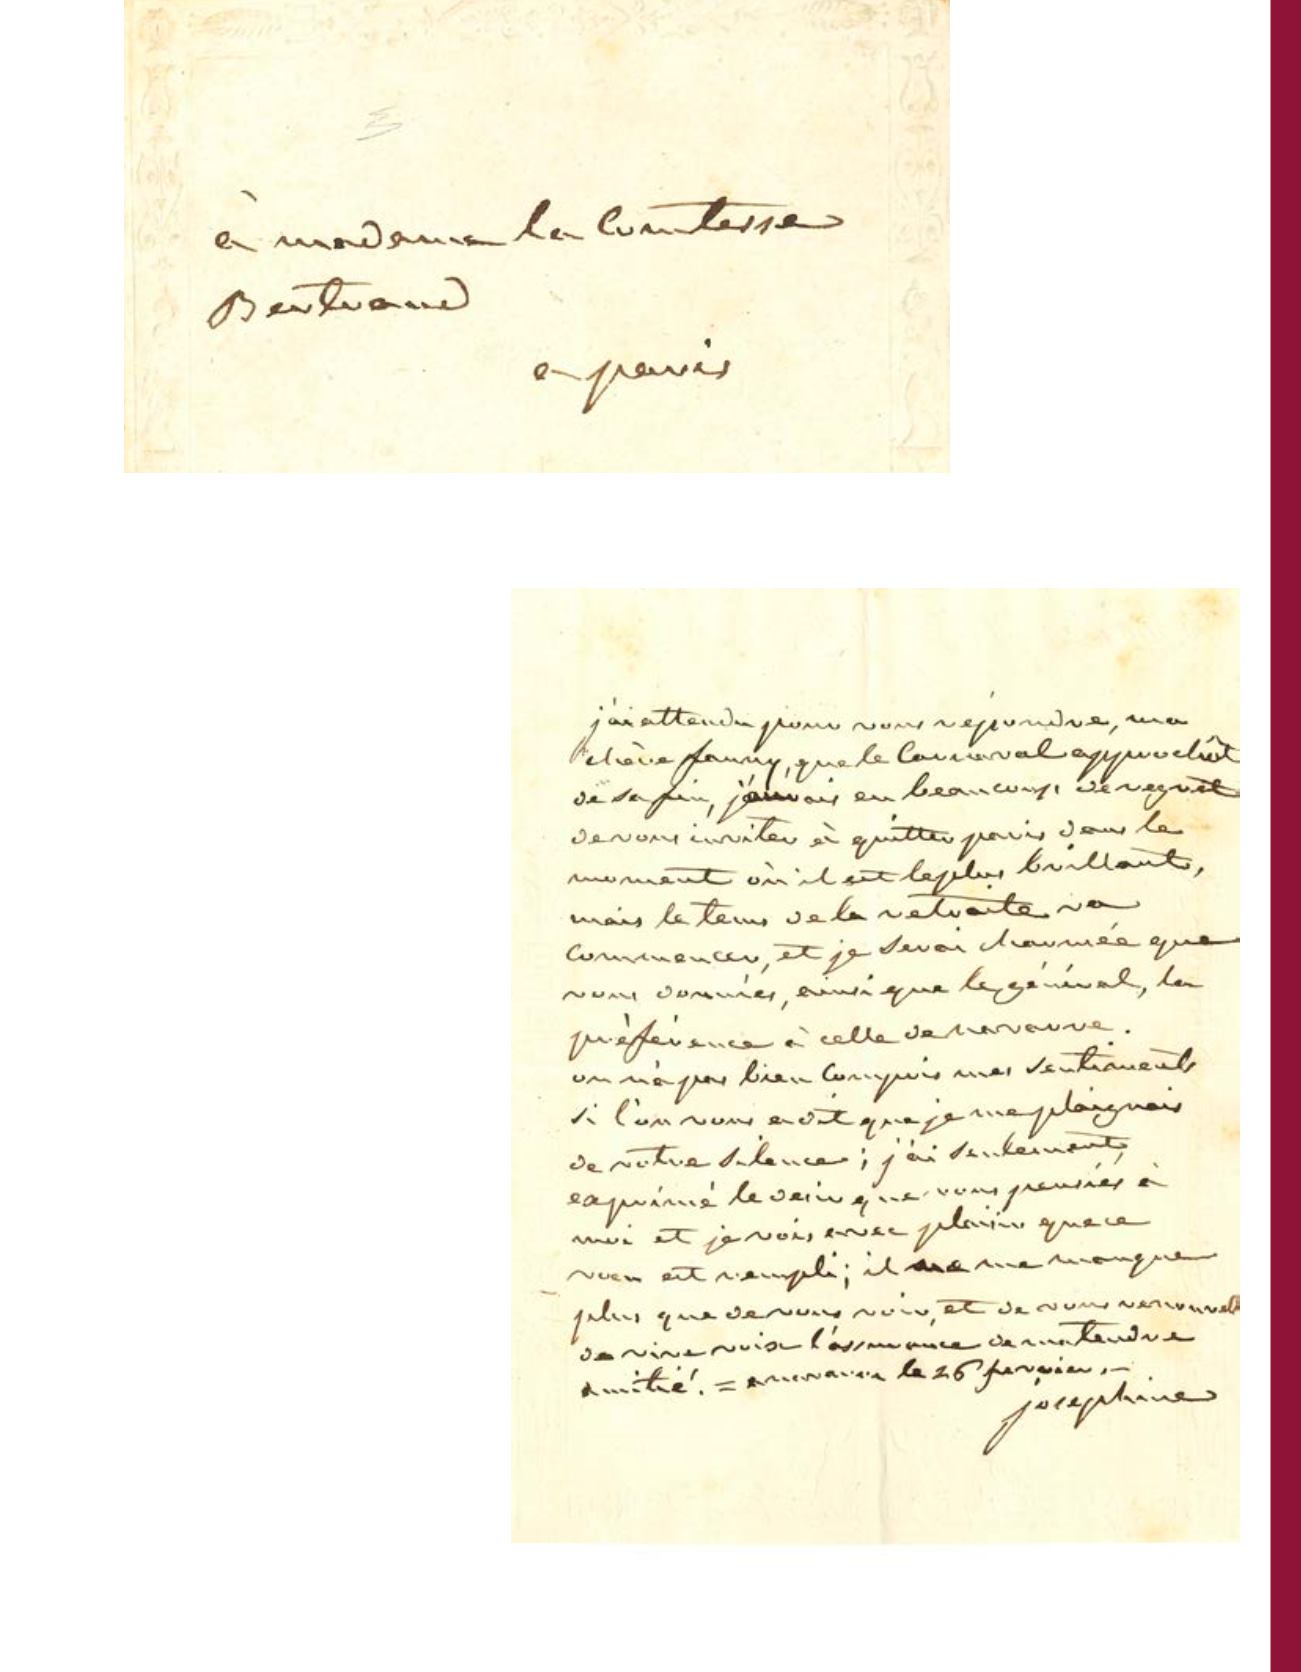 à madame la Comtesse
Bertrand
a paris
j'ai attendu pour vous répondre, ma
chère fanny, que le Carnaval approchât
de sa fin, j'aurois eu beaucoup de regret
de vous inviter à quitter paris dans le
moment où il est le plus brillant,
mais le tems de la retraite va
commencer, et je serai charmée que
vous donniés, ainsi que le général, la
préférence à celle de navarre.
on n'a pas bien Compris mes sentiments
si l'on vous a dit que je me plaignais
de votre silence; j'ai seulement
exprimé le desir que vous pensiés à
moi et je vois avec plaisir que ce
voeu est rempli; il ne me manque
plus que de vous voir, et de vous renouvel
de vive voix l'assurance de ma tendre
amitié. = a navarre le 26 fevrier. —
josephine